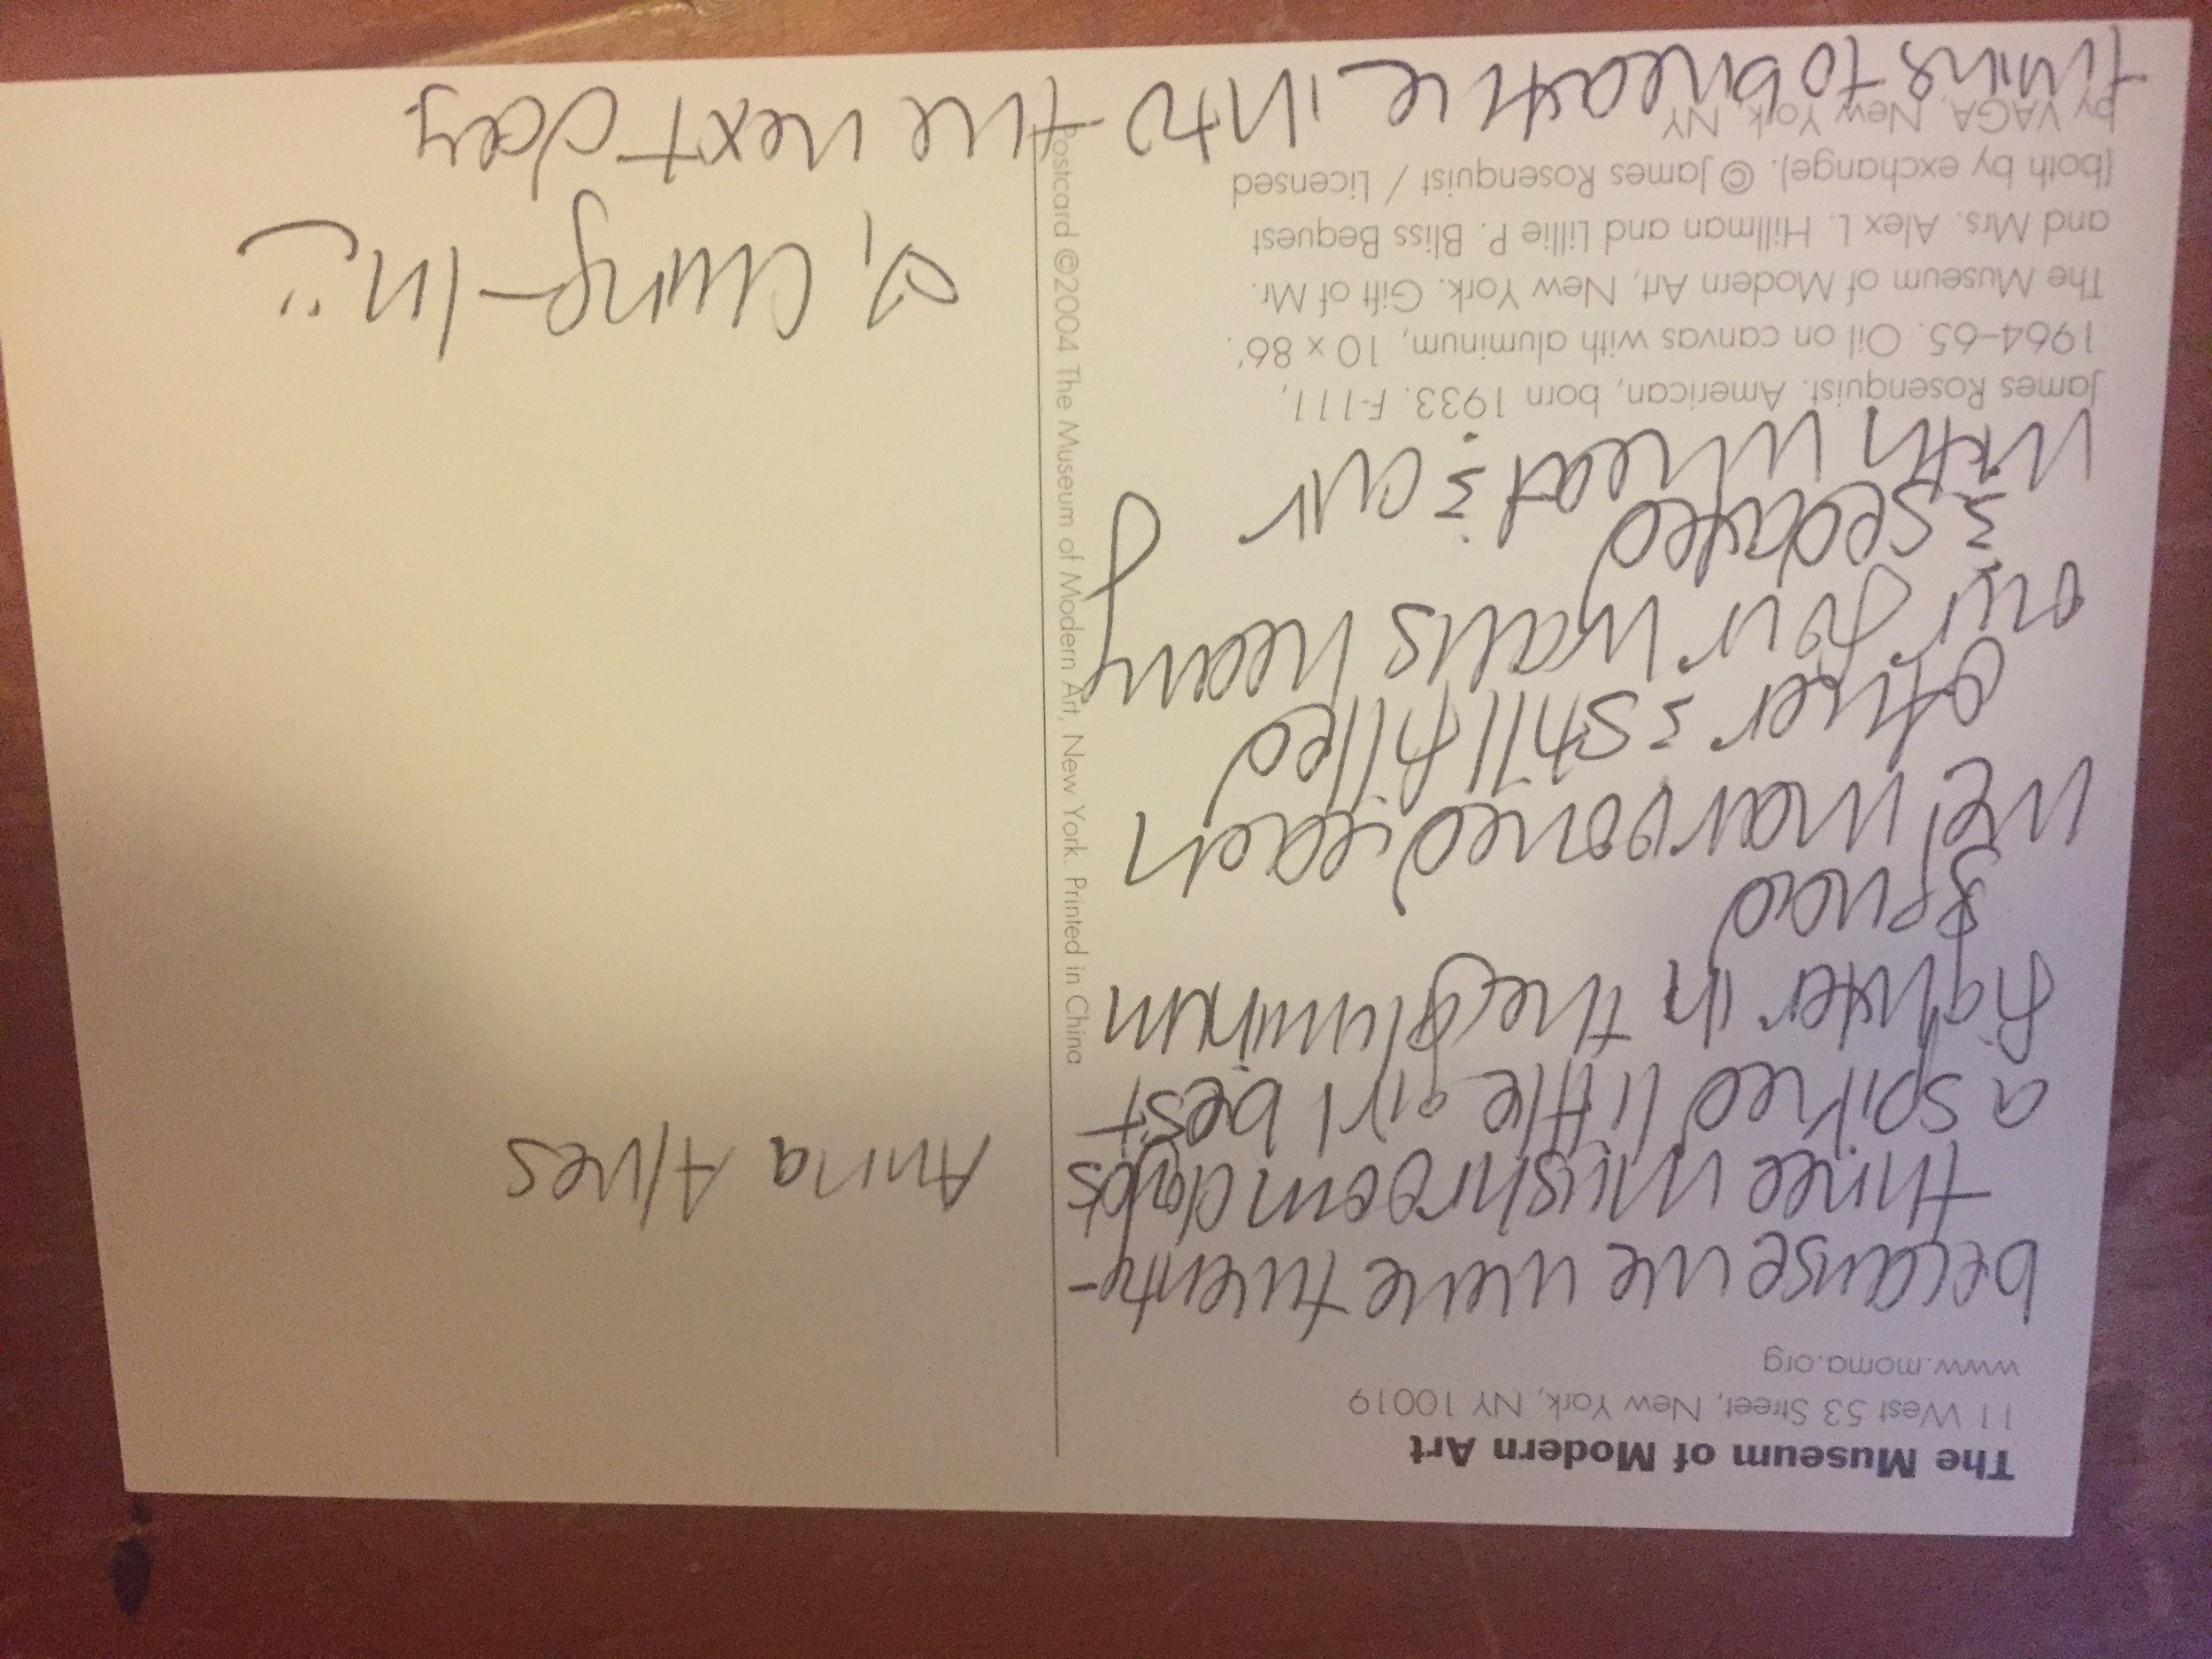 The Museum of Modern Art
11 West 53 Street, New York, NY 10019
www.moma.org
because we were twenty-
three mushroom
a spiked little girl best
fighter in the aluminum
squad
we each
other & still filled
our four walls heavy
&
with wheat & air
James Rosenquist. American, born 1933. F-111,
1964–65. Oil on canvas with aluminum, 10 x 86'.
The Museum of Modern Art, New York. Gift of Mr.
and Mrs. Alex L. Hillman and Lillie P. Bliss Bequest
(both by exchange). © James Rosenquist / Licensed
by VAGA, New York, NY
to breathe into the next day.
Postcard ©2004 The Museum of Modern Art, New York. Printed in China
Anna Alves
♡, Chung-In